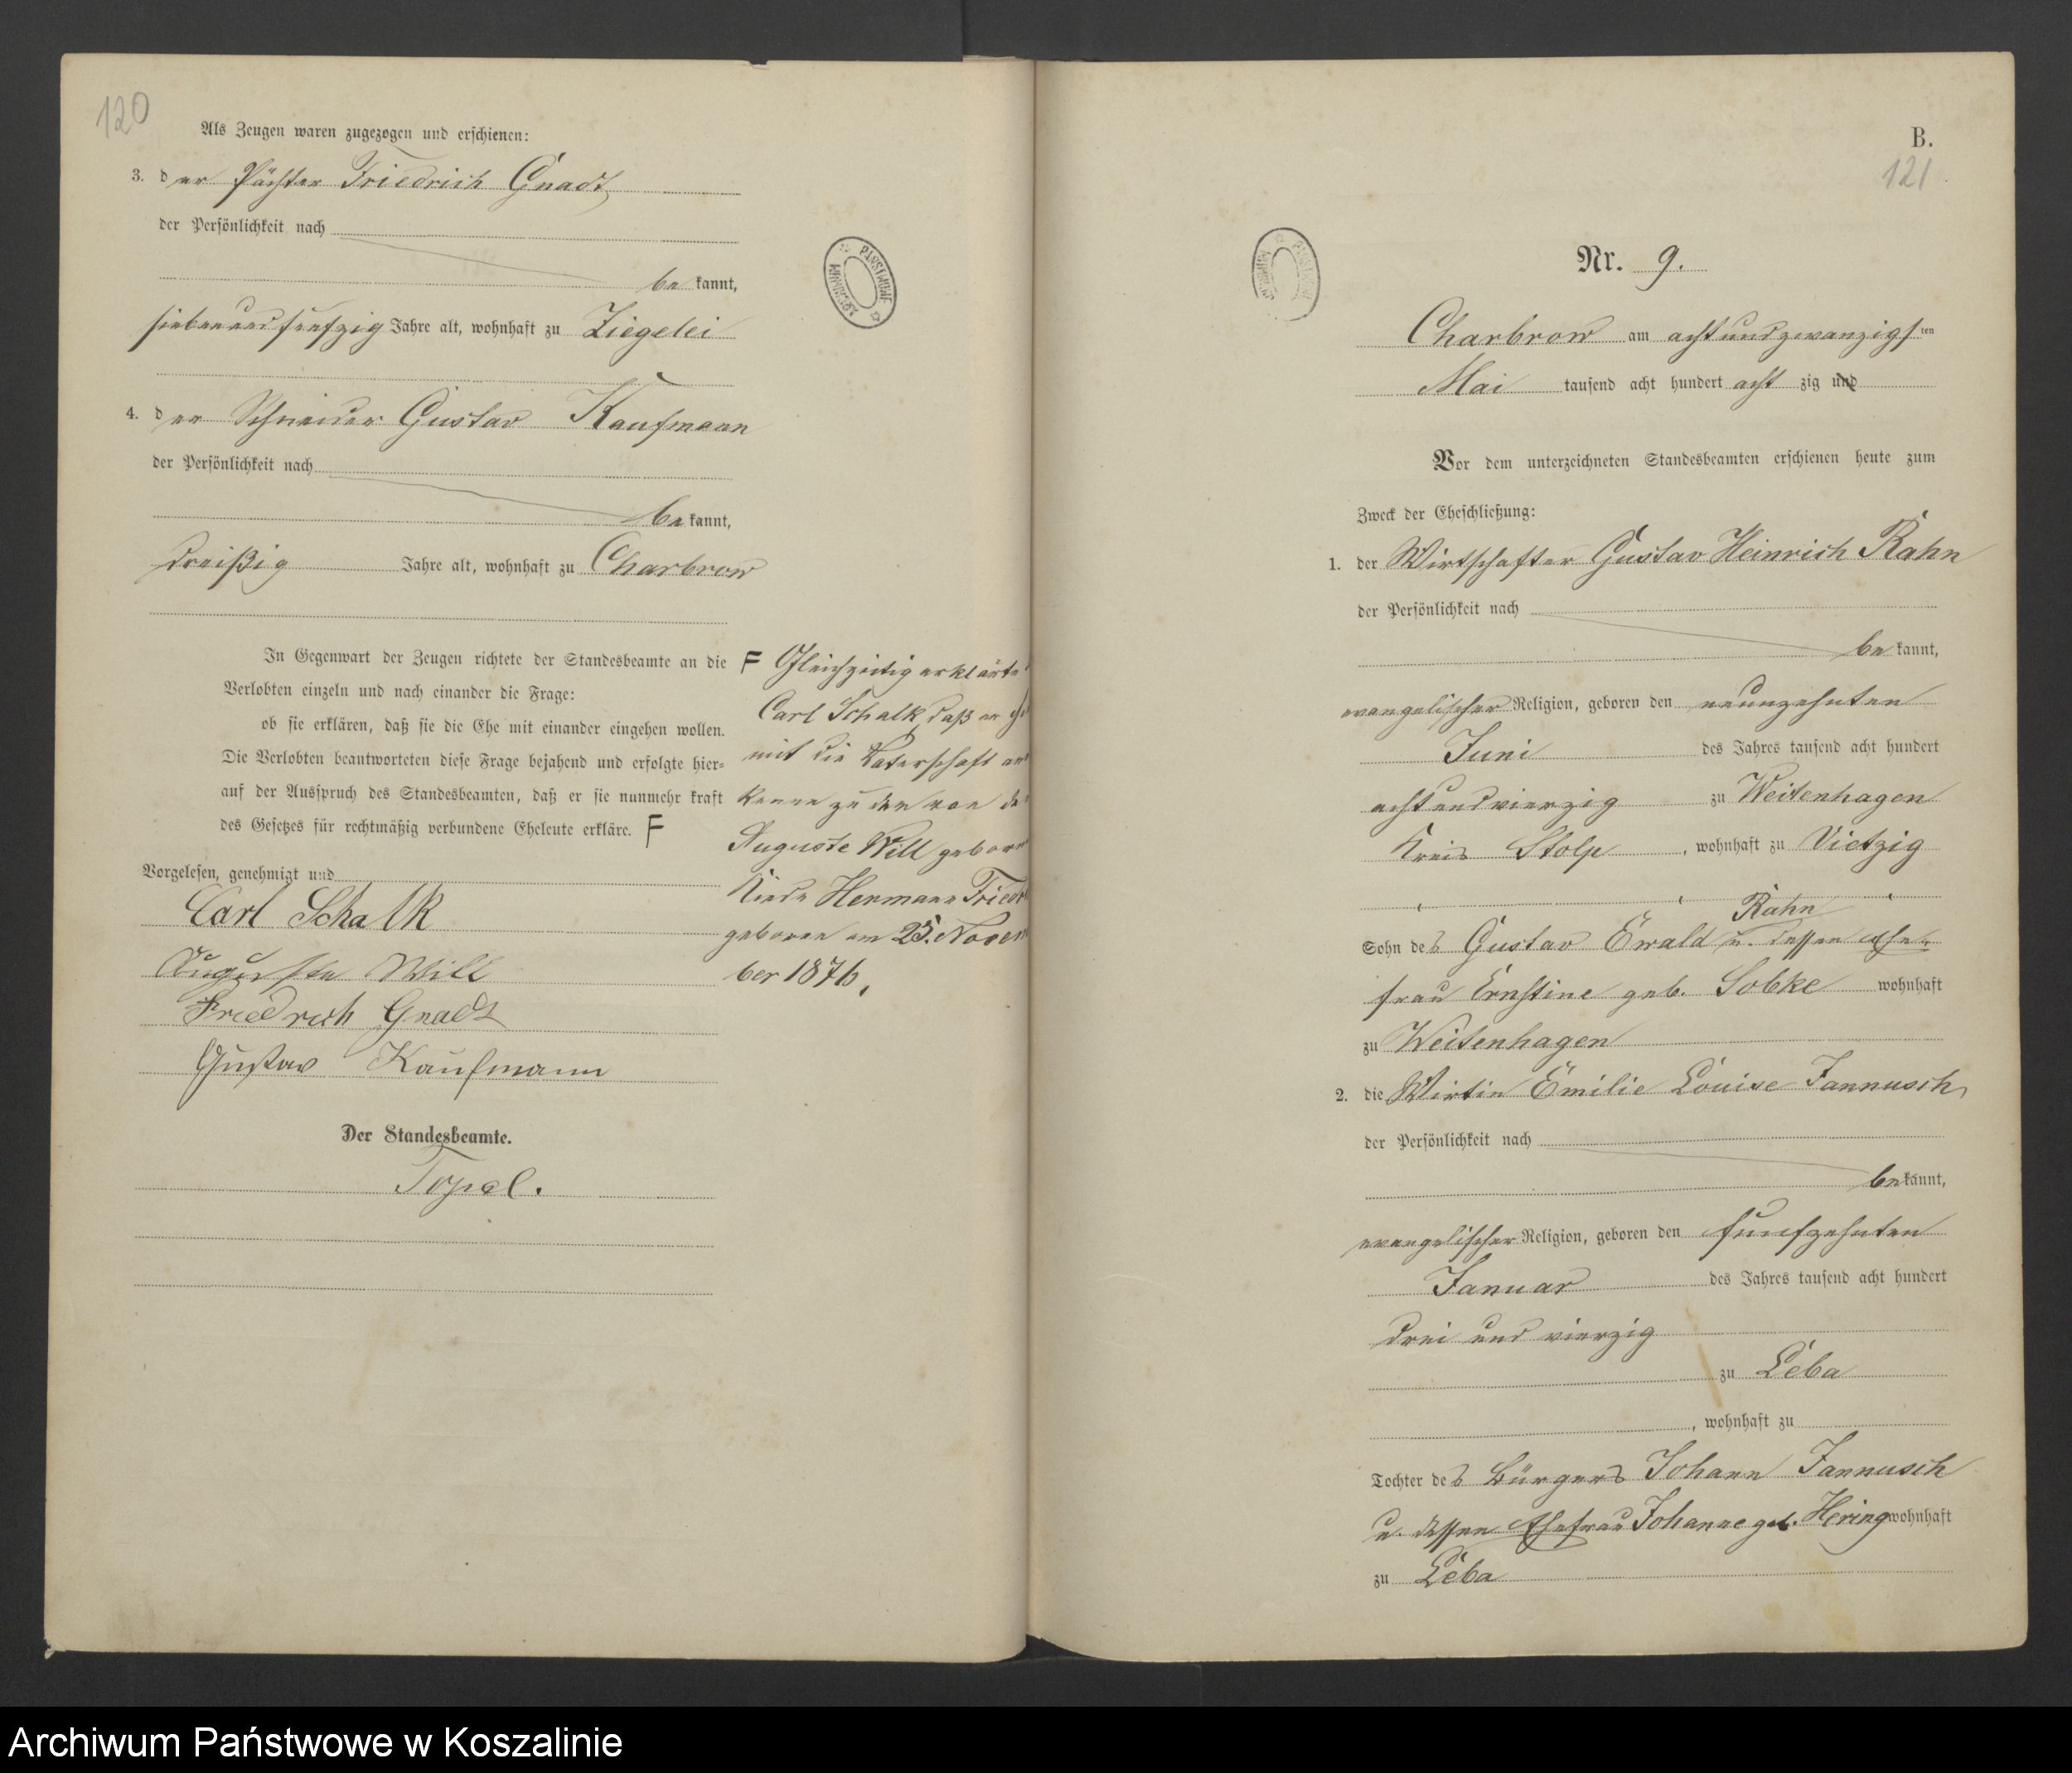 120
Als Zeugen waren zugezogen und erschienen:
3. der Pächter Friedrich Gnadt
der Persönlichkeit nach
bekannt,
siebenundfünfzig Jahre alt, wohnhaft zu Ziegelei
4. der Schneider Gustav Kaufmann
der Persönlichkeit nach
bekannt,
dreißig Jahre alt, wohnhaft zu Charbrow
In Gegenwart der Zeugen richtete der Standesbeamte an die
Verlobten einzeln und nach einander die Frage:
ob sie erklären, daß sie die Ehe mit einander eingehen wollen.
Die Verlobten beantworteten diese Frage bejahend und erfolgte hier-
auf der Ausspruch des Standesbeamten, daß er sie nunmehr kraft
des Gesetzes für rechtmäßig verbundene Eheleute erkläre. F
F Gleichzeitig erklärte
Carl Schalk, daß er
mit die Vaterschaft
kenne zu dem von
Auguste Will
Kinde Hermann
geboren am 25. Novem
ber 1876,
Vorgelesen, genehmigt und
Carl Schalk
Auguste Will
Friedrich Gnadt
Gustav Kaufmann
Der Standesbeamte.
Topel.
PAŃSTWOWE ARCHIWUM
B.
121
PAŃSTWOWE ARCHIWUM
Nr. 9.
Charbrow am achtundzwanzigsten
Mai tausend acht hundert acht zig und
Vor dem unterzeichneten Standesbeamten erschienen heute zum
Zweck der Eheschließung:
1. der Wirtschafter Gustav Heinrich Rahn
der Persönlichkeit nach
bekannt,
evangelischer Religion, geboren den neunzehnten
Juni des Jahres tausend acht hundert
achtundvierzig zu Weitenhagen
Kreis Stolp, wohnhaft zu Vietzig
Rahn
Sohn des Gustav Ewald u. dessen Ehe-
frau Ernstine geb. Sobke wohnhaft
zu Weitenhagen
2. die Wirtin Emilie Louise Jannusch,
der Persönlichkeit nach
bekannt,
evangelischer Religion, geboren den fünfzehnten
Januar des Jahres tausend acht hundert
drei und vierzig
zu Leba
, wohnhaft zu
Tochter des Bürgers Johann Jannusch
u. dessen Ehefrau Johanne geb. Hering wohnhaft
zu Leba
Archiwum Państwowe w Koszalinie